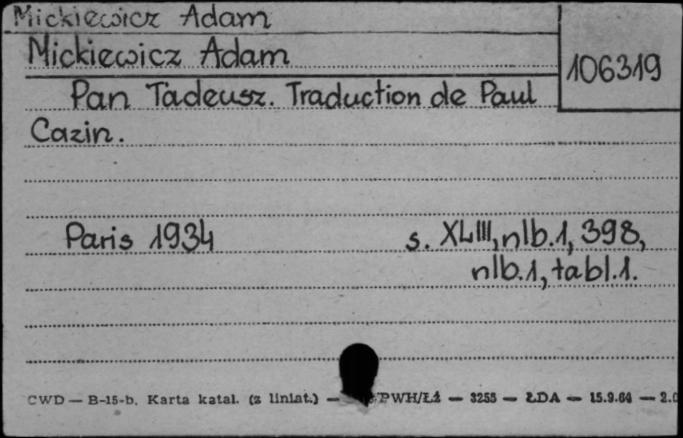 Mickiewicz Adam
Mickiewicz Adam
106319
Pan Tadeusz. Traduction de Paul
Cazin.
Paris 1934 s. XLIII, nlb.1, 398,
nlb.1, tabl.1.
CWD — B-15-b. Karta katal. (z liniat.) — PWH/Łź — 3255 — ŁDA — 15.9.64 —